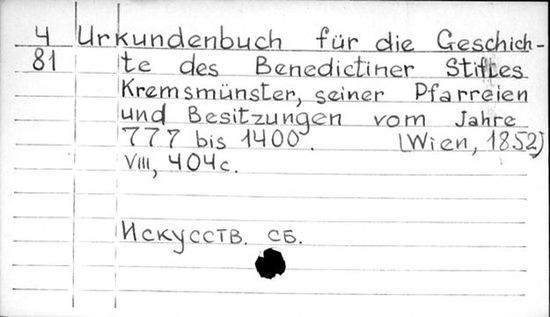 4 Urkundenbuch für die Geschich-
81 te des Benedictiner Stiftes
Kremsmünster, seiner Pfarreien
und Besitzungen vom Jahre
777 bis 1400. (Wien, 1852)
VIII, 404с.
Искусств. сб.